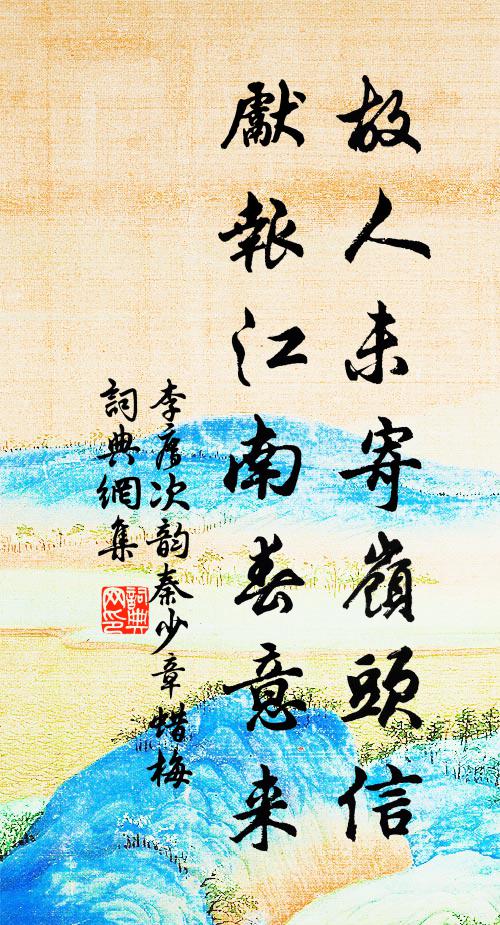 故人未寄嶺頭信
獻報江南春意来
李廌次韵秦少章蜡梅
詞典網集
詞典
网印